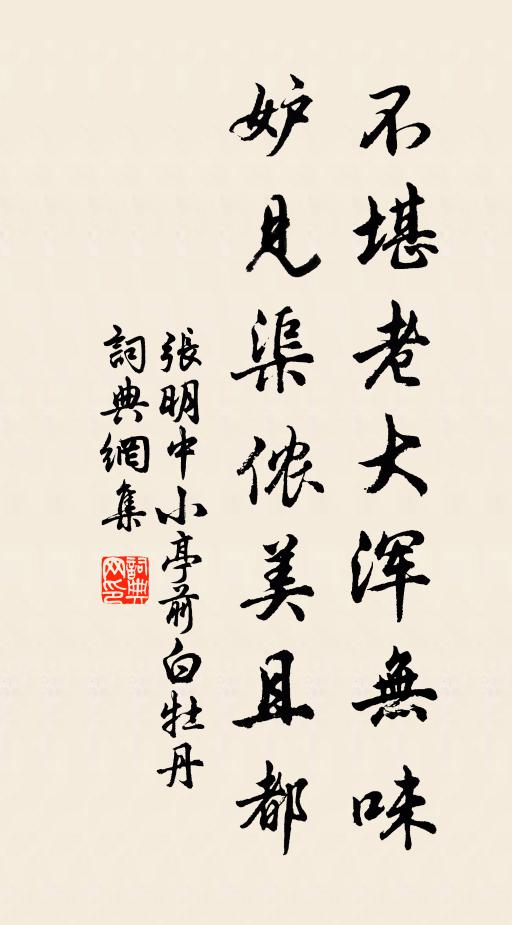 不堪老大浑無味
妒見渠侬美且都
張明中小亭前白牡丹
詞典網集
詞典
网印